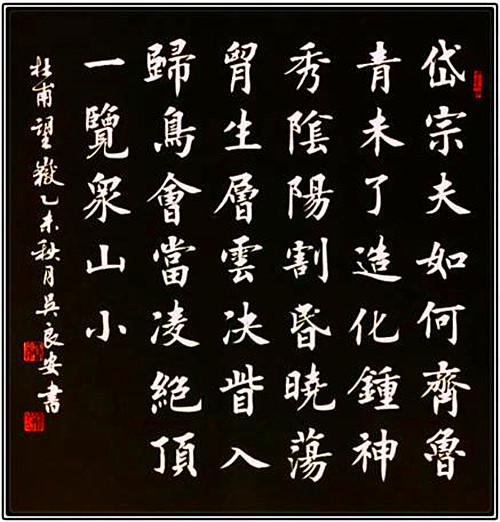 岱宗夫如何齊魯
青未了造化鍾神
秀陰陽割昏曉蕩
胷生層雲决眥入
歸鳥會當凌絕頂
一覽衆山小
杜甫望嶽乙未秋月吳良安書